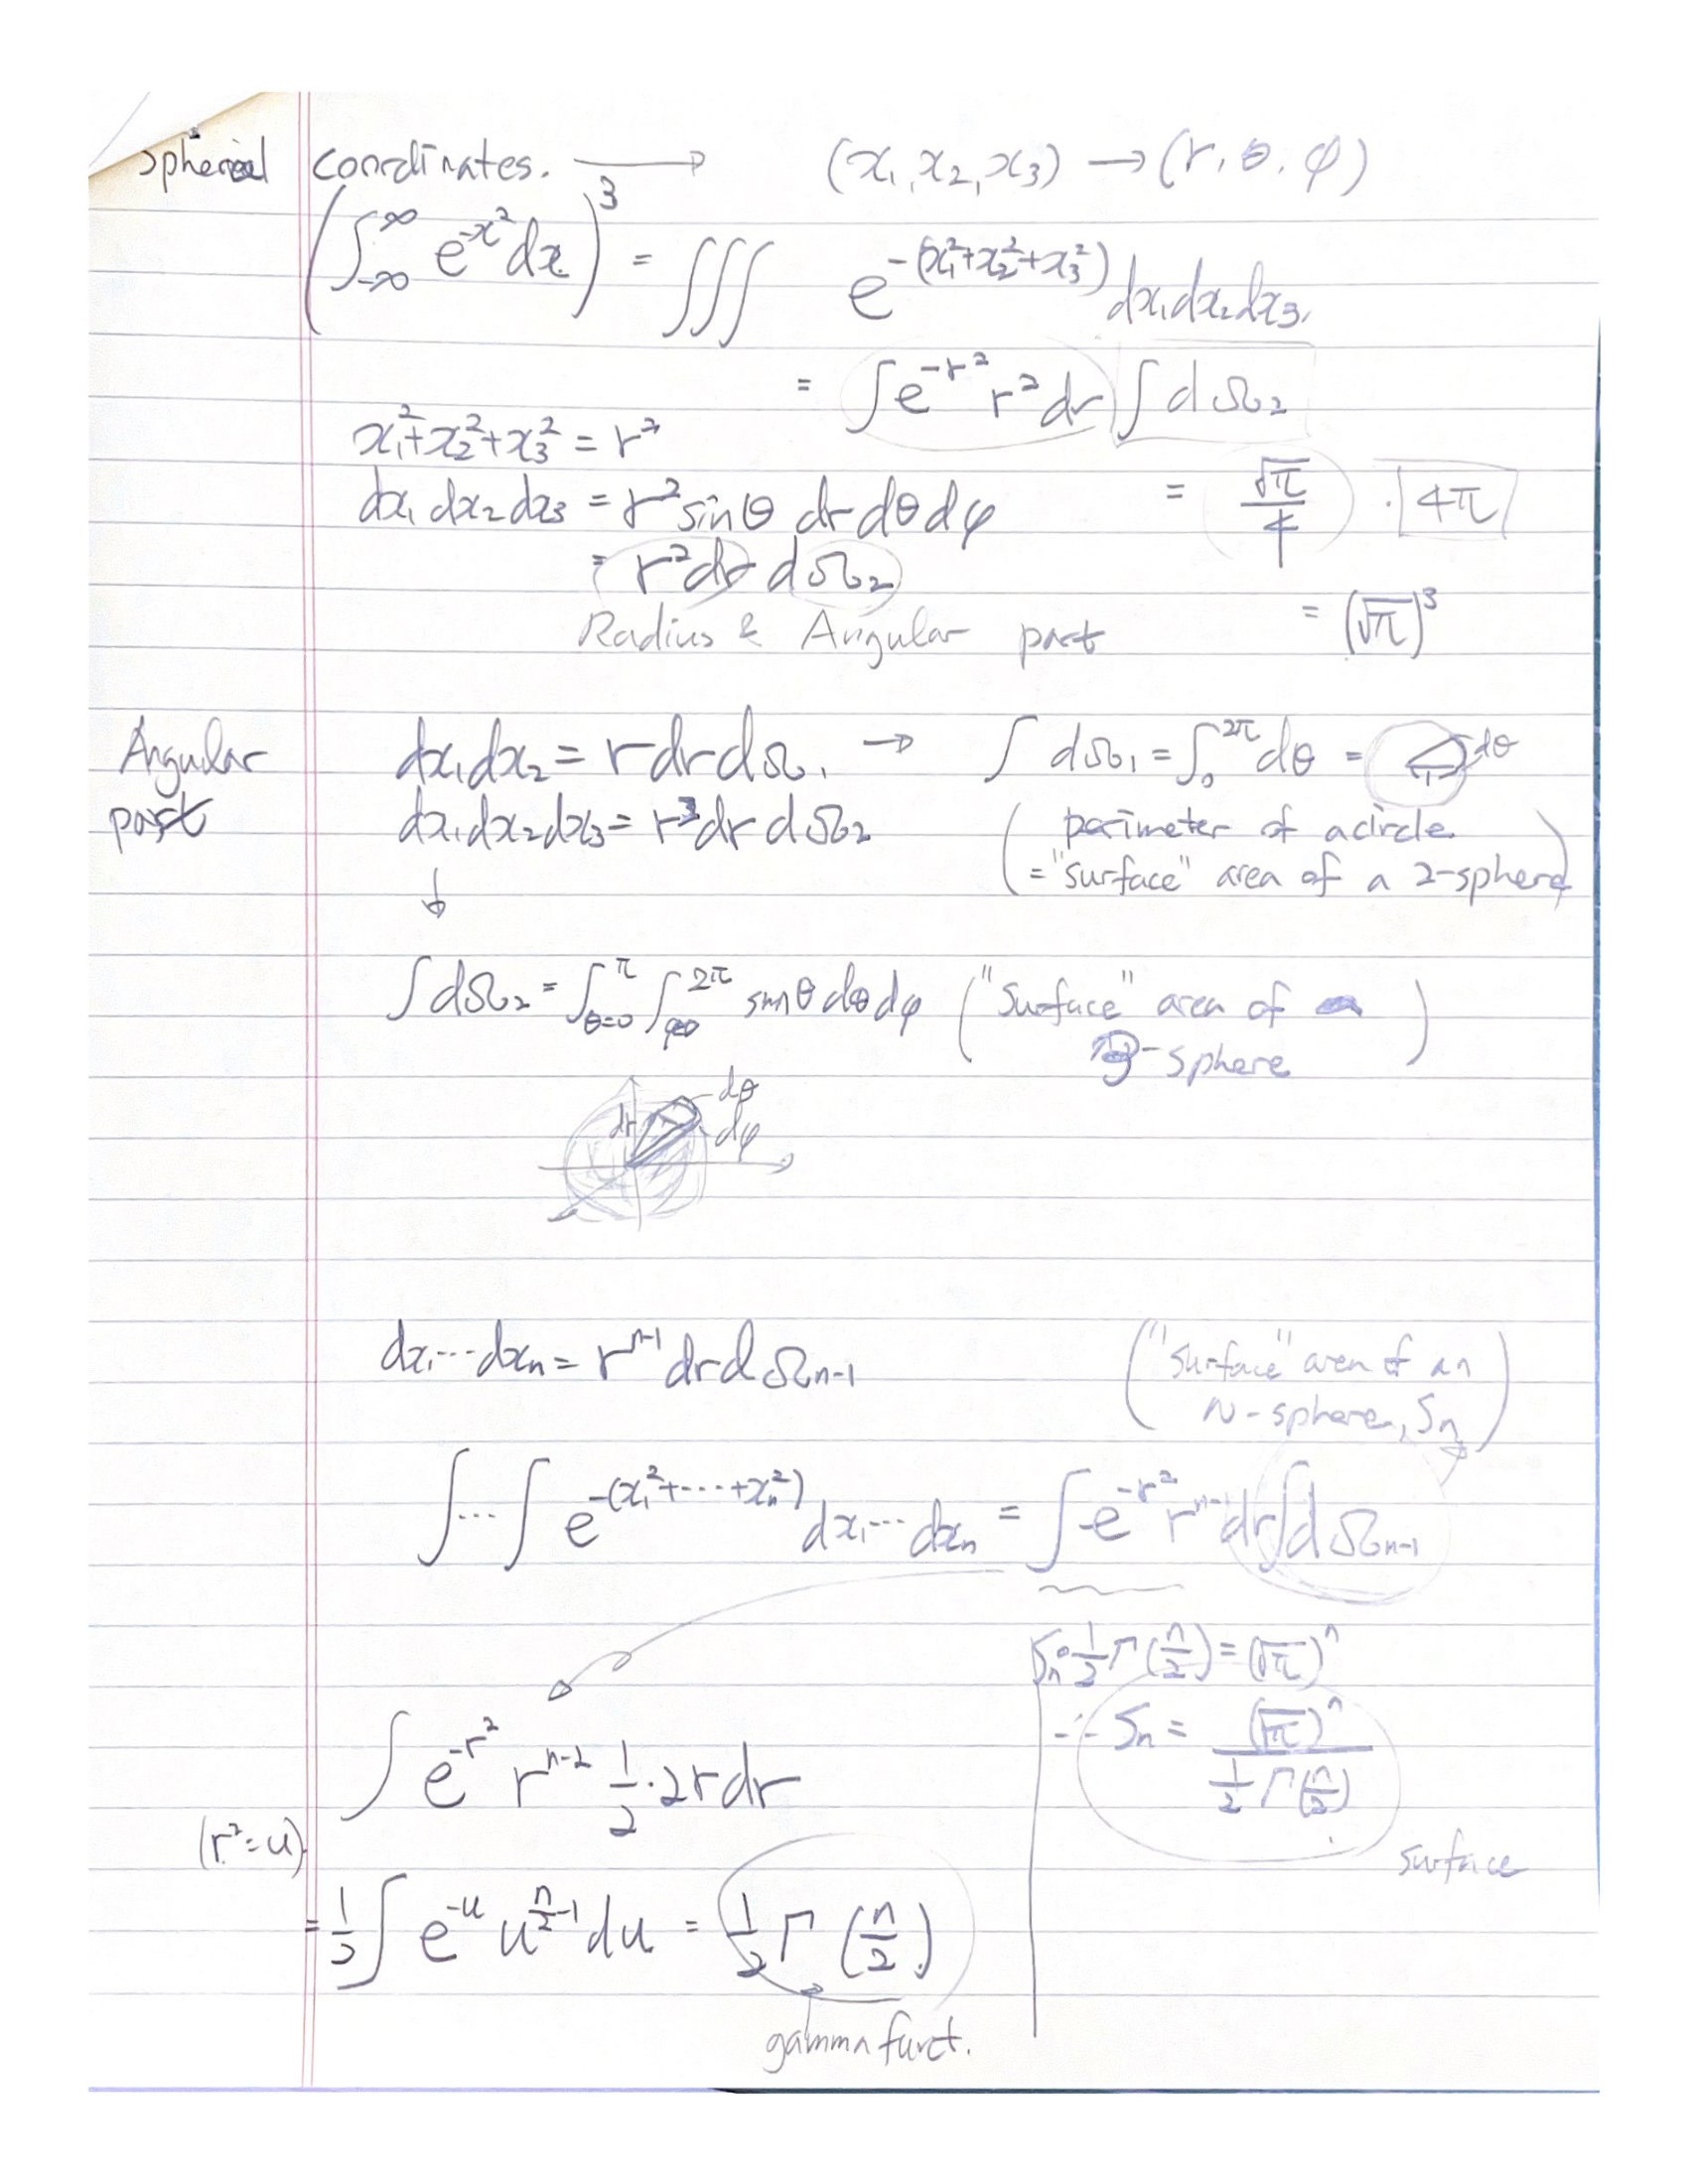 Spherical coordinates. ⟶ (x₁, x₂, x₃) → (r, θ, φ)
(∫_{-∞}^{∞} e^{-x²} dx)³ = ∭ e^{-(x₁²+x₂²+x₃²)} dx₁dx₂dx₃.
= ∫e^{-r²} r² dr ∫dΩ₂
x₁²+x₂²+x₃² = r²
dx₁ dx₂ dx₃ = r² sinθ dr dθ dφ
= r²dr dΩ₂
Radius & Angular part
= √π/4 · 4π
= (√π)³
Angular part
dx₁dx₂ = r dr dΩ₁ → ∫dΩ₁ = ∫₀^{2π} dθ = 1 dθ
dx₁dx₂dx₃ = r³dr dΩ₂
(perimeter of a circle
= "surface" area of a 2-sphere)
↓
∫dΩ₂ = ∫_{θ=0}^{π} ∫_{φ=0}^{2π} sinθ dθ dφ ("Surface" area of
3-sphere)
dr dθ
dφ
dx₁⋯dxₙ = r^{n-1} dr dΩ_{n-1}
("surface" area of an
n-sphere, Sₙ)
∫⋯∫ e^{-(x₁²+⋯+xₙ²)} dx₁⋯dxₙ = ∫e^{-r²} r^{n-1} dr ∫dΩ_{n-1}
∫ e^{-r²} r^{n-2} 1/2 · 2r dr
(r² = u)
= 1/2 ∫ e^{-u} u^{n/2-1} du = 1/2 Γ(n/2)
gamma funct.
Sₙ · 1/2 Γ(n/2) = (√π)ⁿ
∴ Sₙ = (√π)ⁿ / (1/2 Γ(n/2))
surface